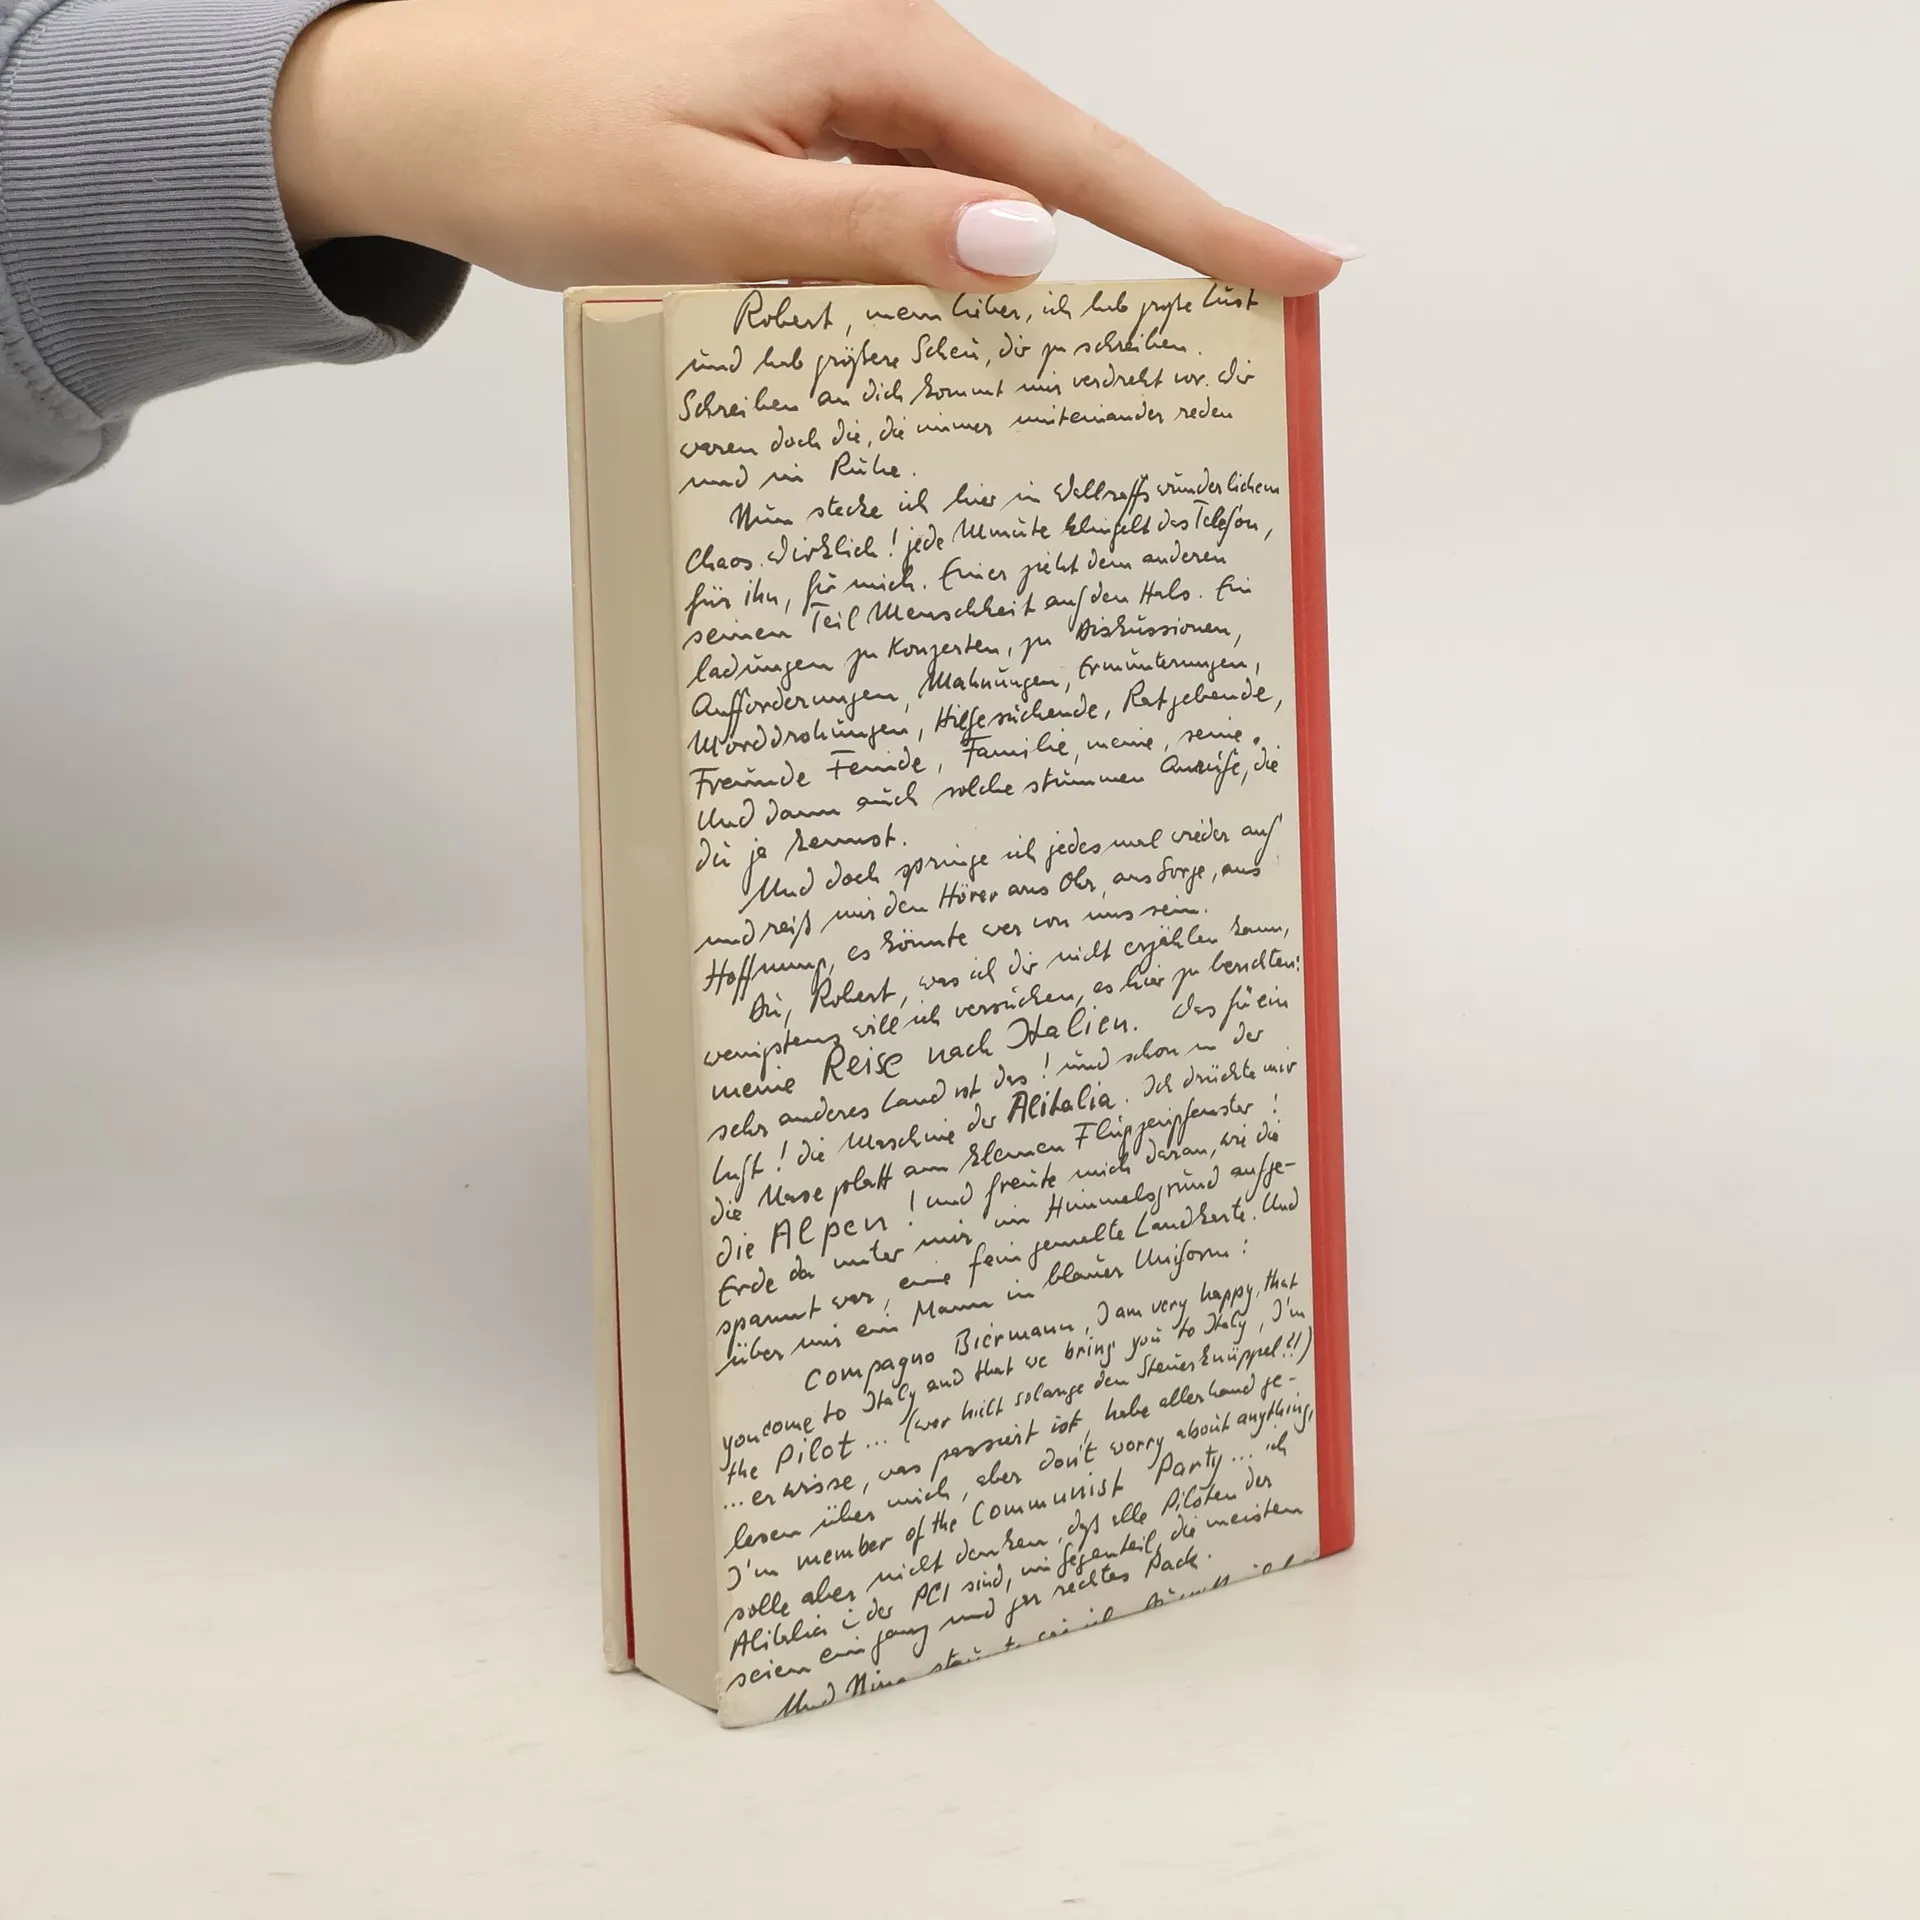 Robert, mein Lieber, ich hab große Lust
und hab größere Scheu, dir zu schreiben.
Schreiben an dich kommt mir verdreht vor. Wir
waren doch die, die immer miteinander reden
und in Ruhe.
Nun stecke ich hier in Wallraffs wunderlichem
Chaos. Wirklich! jede Minute klingelt das Telefon,
für ihn, für mich. Einer zieht dem anderen
seinen Teil Menschheit auf den Hals. Ein
ladungen zu Konzerten, zu Diskussionen,
Aufforderungen, Mahnungen, Ermunterungen,
Morddrohungen, Hilfesuchende, Ratgebende,
Freunde Feinde, Familie, meine, seine.
Und dann auch solche stummen Anrufe, die
du ja kennst.
Und doch springe ich jedes mal wieder auf
und reiß mir den Hörer ans Ohr, aus Sorge, aus
Hoffnung, es könnte wer von uns sein.
Du, Robert, was ich dir nicht erzählen kann,
wenigstens will ich versuchen, es hier zu berichten:
meine Reise nach Italien. Was für ein
sehr anderes Land ist das! und schon in der
Luft! die Maschine der Alitalia. Ich drückte mir
die Nase platt am kleinen Flugzeugfenster!
die Alpen! und freute mich daran, wie die
Erde da unter mir im Himmelsgrund aufge-
spannt war, eine fein gemalte Landkarte. Und
über mir ein Mann in blauer Uniform:
Compagno Biermann, I am very happy, that
you come to Italy and that we bring you to Italy, I'm
the Pilot... (wer hielt solange den Steuerknüppel?!)
... er wisse, was passiert ist, habe allerhand ge-
lesen über mich, aber don't worry about anything,
I'm member of the Communist Party... ich
solle aber nicht denken, daß alle Piloten der
Alitalia in der PCI sind, im Gegenteil, die meisten
seien ein ganz und gar rechtes Pack.
Und Nina